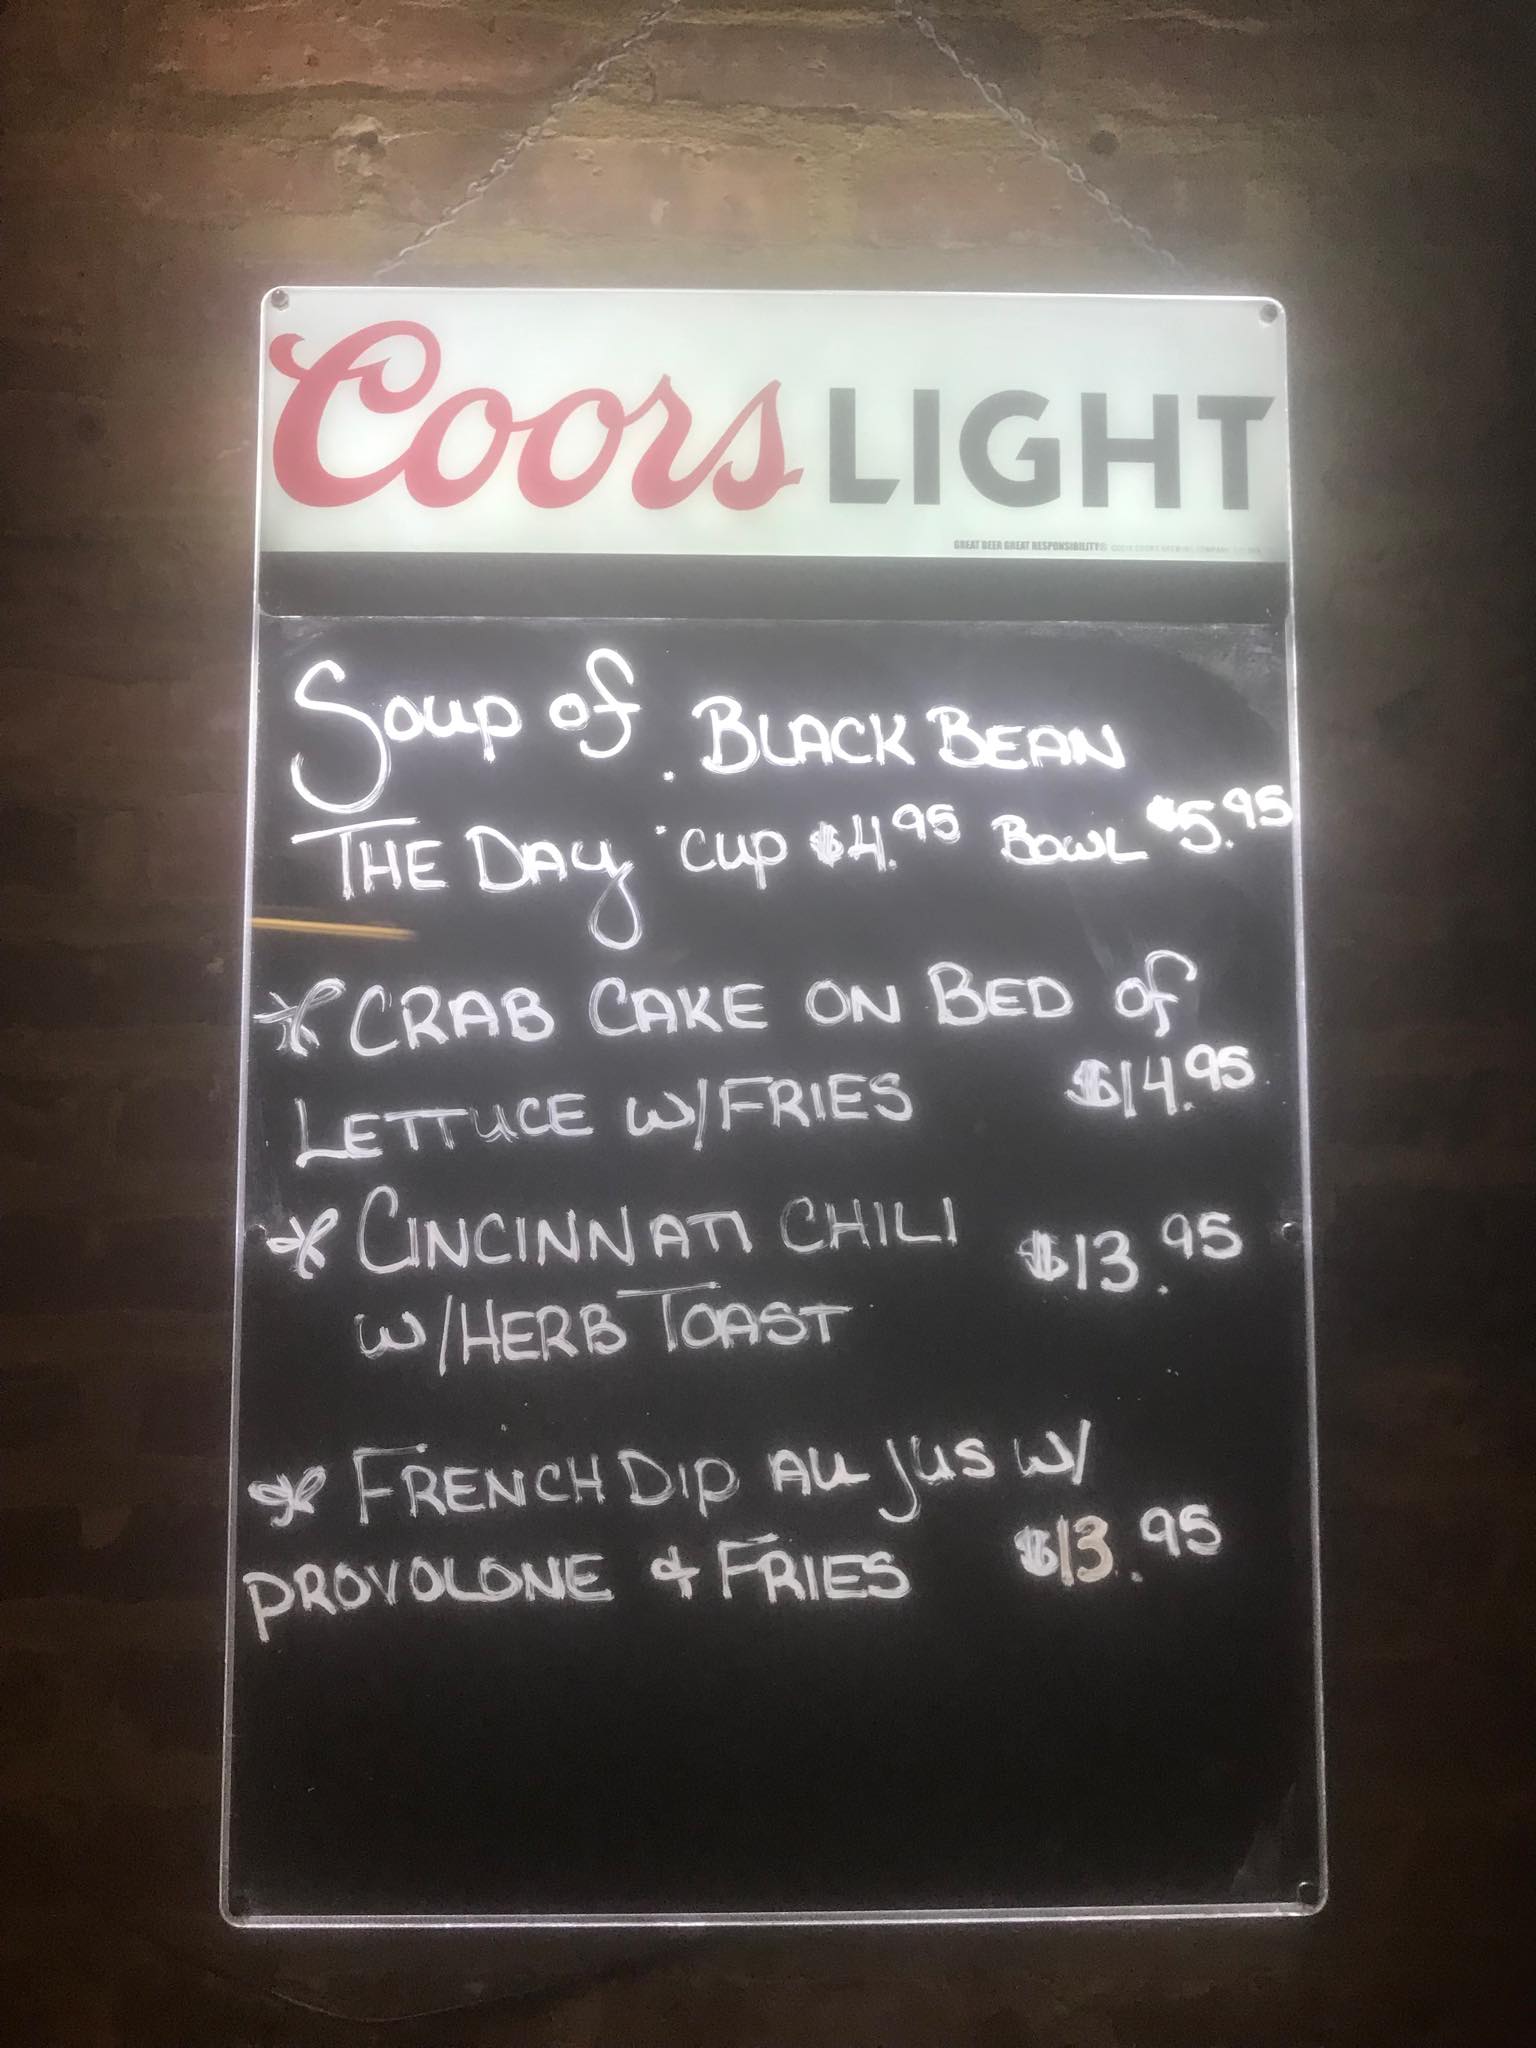 Coors LIGHT
GREAT BEER GREAT RESPONSIBILITY®
Soup of : BLACK BEAN
THE DAY CUP $4.95 BOWL $5.95
CRAB CAKE ON BED of
LETTUCE W/FRIES $14.95
CINCINNATI CHILI $13.95
W/HERB TOAST
FRENCH DIP AU JUS W/
PROVOLONE & FRIES $13.95